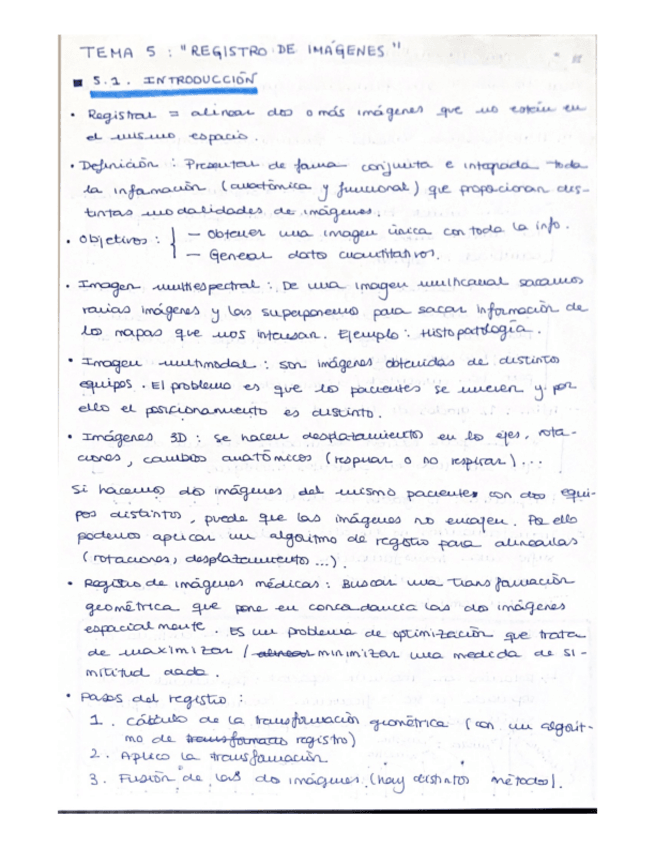 TEMA 5 : "REGISTRO DE IMÁGENES"
5.1. INTRODUCCIÓN
• Registrar = alinear dos o más imágenes que no están en
el mismo espacio.
• Definición : Presentar de forma conjunta e integrada toda
la información (anatómica y funcional) que proporcionan dis-
tintas modalidades de imágenes.
• Objetivos : { — Obtener una imagen única con toda la info.
— Generar datos cuantitativos.
• Imagen multiespectral : De una imagen multicanal sacamos
varias imágenes y las superponemos para sacar información de
los mapas que nos interesan. Ejemplo : Histopatología.
• Imagen multimodal : son imágenes obtenidas de distintos
equipos. El problema es que los pacientes se mueven y por
ello el posicionamiento es distinto.
• Imágenes 3D : se hacen desplazamientos en los ejes, rota-
ciones, cambios anatómicos (respirar o no respirar)...
Si hacemos dos imágenes del mismo paciente con dos equi-
pos distintos, puede que las imágenes no encajen. Por ello
podemos aplicar un algoritmo de registro para alinearlas
(rotaciones, desplazamiento ...).
• Registro de imágenes médicas : Buscar una transformación
geométrica que pone en concordancia las dos imágenes
espacialmente. Es un problema de optimización que trata
de maximizar / alinear minimizar una medida de si-
militud dada.
• Pasos del registro :
1. Cálculo de la transformación geométrica (con un algorit-
mo de transformacio registro)
2. Aplico la transformación
3. Fusión de las dos imágenes (hay distintos métodos).